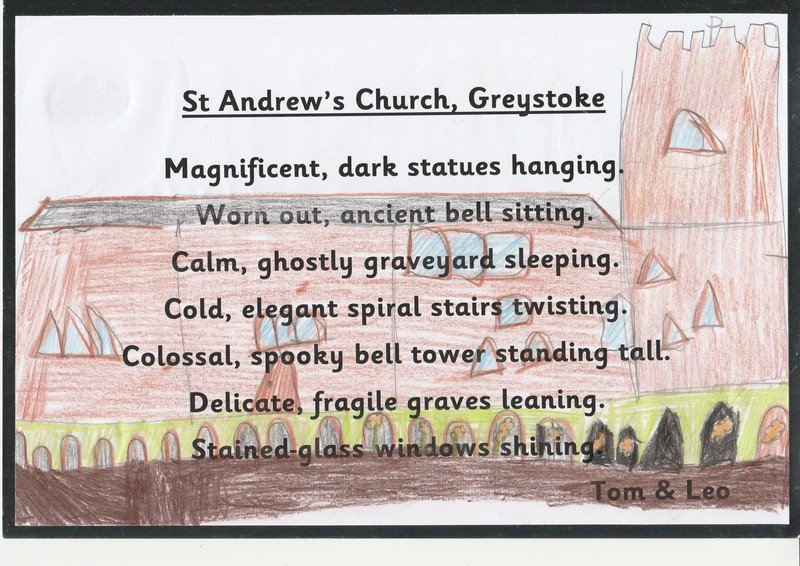 St Andrew's Church, Greystoke
Magnificent, dark statues hanging.
Worn out, ancient bell sitting.
Calm, ghostly graveyard sleeping.
Cold, elegant spiral stairs twisting.
Colossal, spooky bell tower standing tall.
Delicate, fragile graves leaning.
Stained-glass windows shining.
Tom & Leo